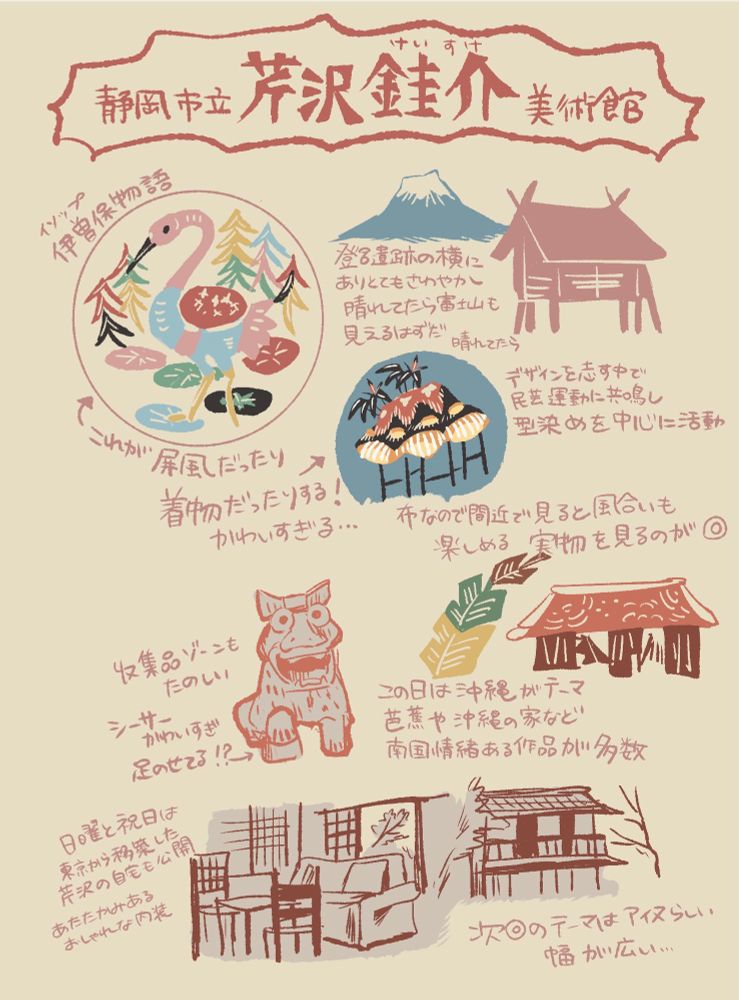 静岡市立 芹沢銈介 美術館
けいすけ
伊曽保物語
イソップ
登呂遺跡の横に
ありとてもさわやかし
晴れてたら富士山も
見えるはずだ
晴れてたら
デザインを志す中で
民芸運動に共鳴し
型染めを中心に活動
これが屏風だったり
着物だったりする!
かわいすぎる…
布なので間近で見ると風合いも
楽しめる 実物を見るのが◎
収集品ゾーンも
たのしい
シーサー
かわいすぎ
足のせてる!?
この日は沖縄がテーマ
芭蕉や沖縄の家など
南国情緒ある作品が多数
日曜と祝日は
東京から移築した
芹沢の自宅も公開
あたたかみある
おしゃれな内装
次回のテーマはアイヌらしい
幅が広い…